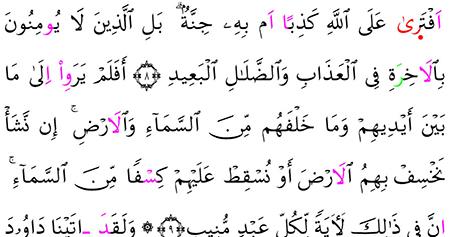 اَفْتَرٜىٰ عَلَى ٱللَّهِ كَذِبًا اَم بِهِۦ جِنَّةٌۗ بَلِ ٱلَّذِينَ لَا يُومِنُونَ
بِٱلَاخِرَةِ فِى ٱلْعَذَابِ وَٱلضَّلَٰلِ ٱلْبَعِيدِ ۝٨ أَفَلَمْ يَرَوِاْ اِلَىٰ مَا
بَيْنَ أَيْدِيهِمْ وَمَا خَلْفَهُم مِّنَ ٱلسَّمَآءِ وَٱلَارْضِۚ إِن نَّشَأْ
نَخْسِفْ بِهِمُ ٱلَارْضَ أَوْ نُسْقِطْ عَلَيْهِمْ كِسْفًا مِّنَ ٱلسَّمَآءِۚ
انَّ فِى ذَٰلِكَ لَأَيَةً لِّكُلِّ عَبْدٍ مُّنِيبٍ ۝٩ ۞ وَلَقَدَ ـاتَيْنَا دَاوُۥدَ